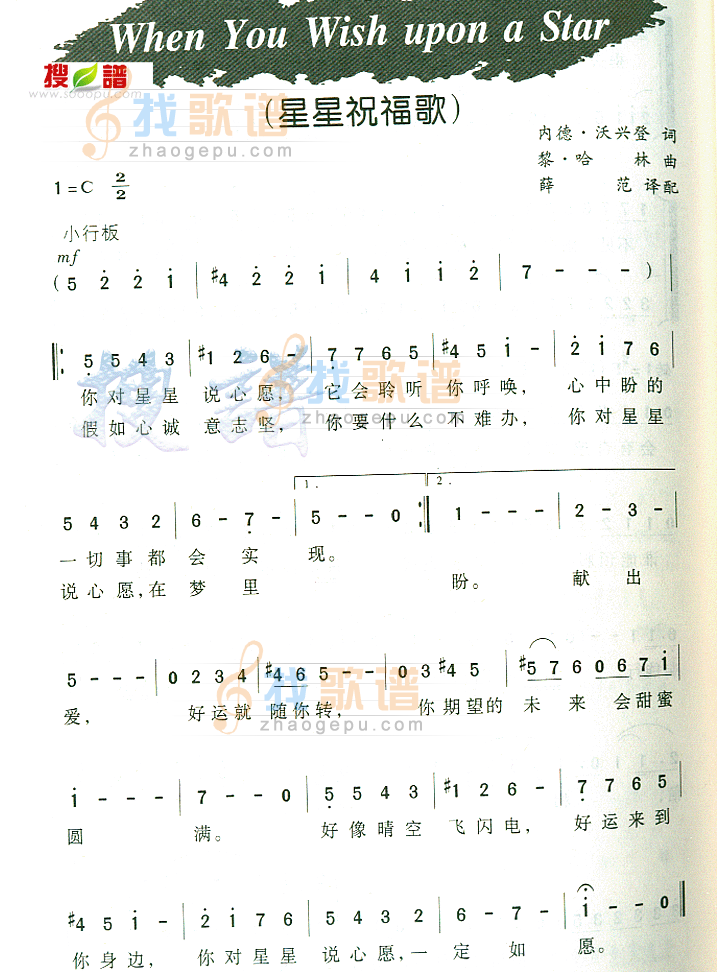 When You Wish upon a Star
搜譜
www.sooopu.com
找歌谱
zhaogepu.com
(星星祝福歌)
内德·沃兴登 词
黎·哈 林 曲
薛 范 译配
1=C 2/2
小行板
mf
(5 2 2 1 | #4 2 2 1 | 4 1 1 2 | 7 - - - )
5 5 4 3 | #1 2 6 - | 7 7 6 5 | #4 5 1 - | 2 1 7 6
你对星星 说心愿, 它会聆听 你呼唤, 心中盼的
假如心诚 意志坚, 你要什么 不难办, 你对星星
1. 2.
5 4 3 2 | 6 - 7 - | 5 - - 0 :| 1 - - - | 2 - 3 -
一切事都 会 实 现。
说心愿,在 梦 里 盼。 献 出
5 - - - | 0 2 3 4 | #4 6 5 - - | 0 3 #4 5 | #5 7 6 0 6 7 1
爱, 好运就 随你转, 你期望的 未 来 会甜蜜
找歌谱
zhaogepu.com
1 - - - | 7 - - 0 | 5 5 4 3 | #1 2 6 - | 7 7 6 5
圆 满。 好像晴空 飞闪电, 好运来到
#4 5 1 - | 2 1 7 6 | 5 4 3 2 | 6 - 7 - | 1 - - 0
你身边, 你对星星 说心愿,一 定 如 愿。